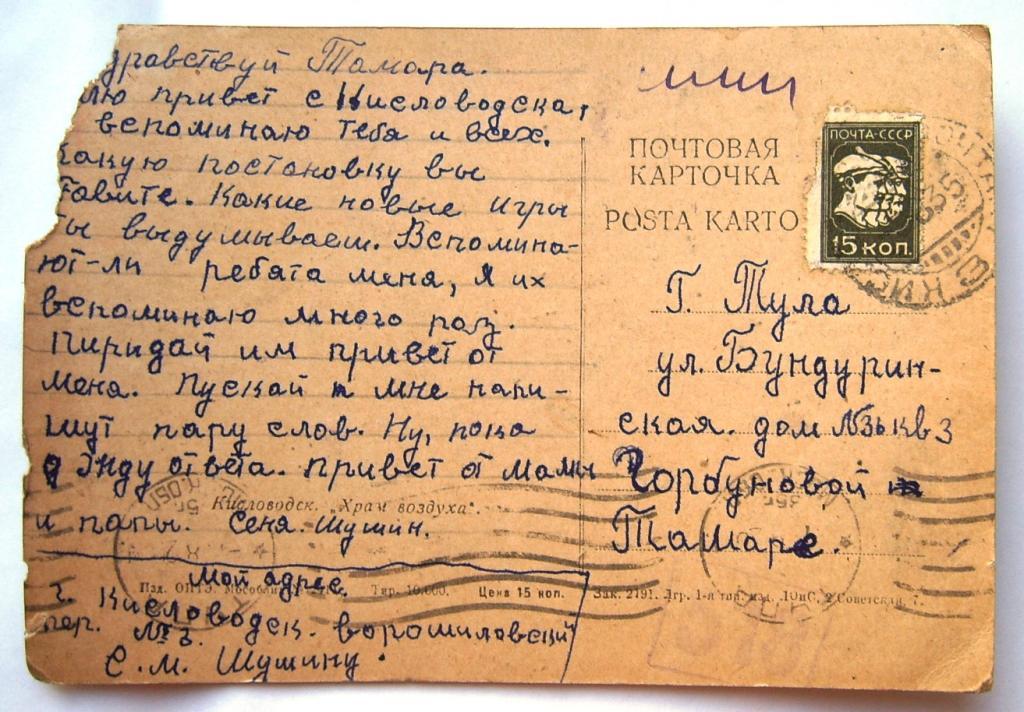 дравствуй Тамара.
лю привет с Кисловодска,
вспоминаю тебя и всех.
какую постановку вы
тавите. Какие новые игры
ты выдумываеш. Вспомина-
ют-ли ребята меня, я их
вспоминаю много раз.
Пиридай им привет от
меня. Пускай мне напи-
шут пару слов. Ну, пока
Энду ответа. привет от мамы
Кисловодск. „Храм воздуха".
и папы. Сеня. Шушин.
Мой адрес.
Изд. ОПТЭ. Тир. 10.000. Цена 15 коп. Зак. 2191.
г. Кисловодск. ворошиловский
пер. №3.
С. М. Шушину.
ПОЧТОВАЯ
КАРТОЧКА
POSTA KARTO
ПОЧТА-СССР
15 коп.
Г. Тула
ул. Бундурин-
ская. дом кв 3
Горбуновой
Тамаре.